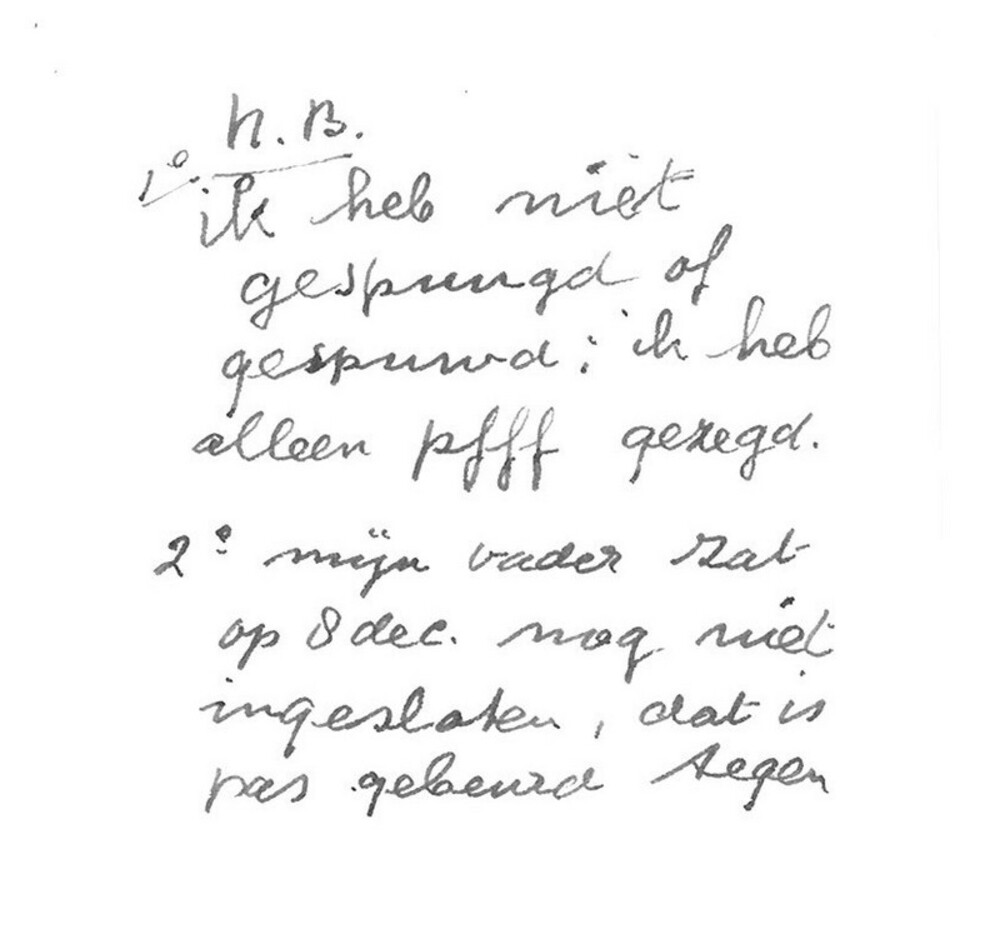 N.B.
1º. ik heb niet
gespuugd of
gespuwd; ik heb
alleen pfff gezegd.
2º mijn vader zat
op 8 dec. nog niet
ingesloten, dat is
pas gebeurd tegen